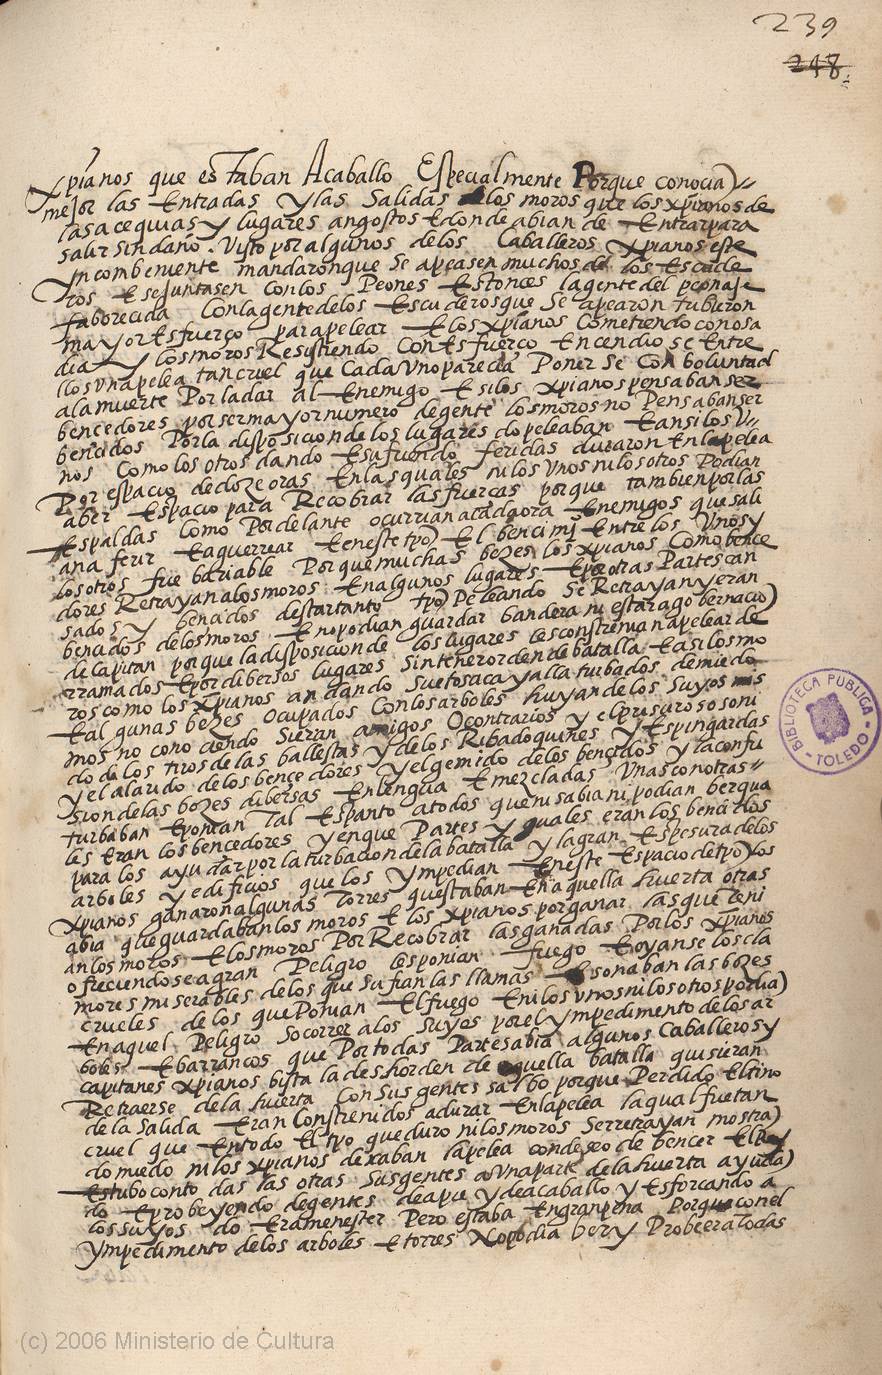 239
248
xpianos que estaban Acaballo Especialmente Porque conocia)
mejor las Entradas y las Salidas delos moros que los xpianos de
las acequias y lugares angostos E donde abian de Entrar para
salir sin daño. Visto por algunos delos Caballeros xpianos este
ynconbeniente mandaron que Se apeasen muchos de los Escude
ros E se juntasen con los Peones Estonces la gente del peonaje
faborecida Con la gente delos Escuderos que Se apearon tubieron
mayor Esfuerço para pelear E los xpianos Cometiendo con osa
dia y los moros Resistiendo con Esfuerço Encendio se Entre
llos vna pelea tan cruel que Cada vno parecia Poner Se Con boluntad
ala muerte Por ladar al Enemigo E si los xpianos pensaban ser
bencedores por ser mayor numero de gente los moros no Pensaban ser
bencidos Por la disposicion de los lugares do peleaban E ansi los v
nos Como los otros dando E sufriendo feridas duraron En la pelea
Por espacio de doze oras En las quales ni los vnos ni los otros Podian
aber Espacio para Recobrar las fuerças porque tambien por las
Espaldas Como Por delante ocurrian a cada ora Enemigos que sali
an a ferir E a guerrear E en este tpo) El bencimi Entre los vnos y
los otros fue bariable Porque muchas bezes los xpianos Como bence
dores Retrayan a los moros En algunos lugares E por otras Partes can
sados y bencidos de star tanto tpo) Peleando Se Retrayan y eran
bencidos delos moros E no podian guardar bandera ni estar a gobernacio)
de capitan porque la disposicion de los lugares les constreñia a pelear de
rramados E por diberssos lugares sin tener orden de batalla E asi los mo
ros como los xpianos andando Sueltos aca y alla turbados de miedo
E algunas bezes ocupados Con los arboles huyan de los Suyos mis
mos no conociendo Si eran amigos O contrarios y el presuroso soni
do de los tiros de las ballestas y de los Ribadoquines y Espingardas
y el alarido de los bençedores y el gemido de los bençidos y la confu
sion de las bozes dibersas En lengua E mezcladas Vnas con otras
turbaban E ponian Tal Espanto a todos que ni sabian ni podian ber qua
les Eran los bencedores y en que Partes y quales eran los bencidos
para los ayudar por la turbacion de la batalla y la gran Espesura de los
arboles y edificios que los ympedian En este Espacio de tpo) los
xpianos ganaron algunas Torres questaban En aquella huerta otras
abia que guardaban los moros E los xpianos por ganar las que teni
an los moros E los moros Por Recobrar las ganadas Por los xpianos
ofreciendose a gran Peligro les ponian fuego E oyanse los cla
mores miserables de los que sufrian las llamas E sonaban las bozes
crueles de los que Ponian El fuego E ni los vnos ni los otros podia)
En aquel Peligro Socorrer a los Suyos por el ympedimento de los ar
boles E barrancos que Por todas Partes abia algunos Caballeros y
capitanes xpianos bista la deshorden de aquella batalla quisieran
Retraerse de la huerta Con sus gentes salbo porque Perdido El tino
de la Salida Eran Constreñidos a durar En la pelea la qual fue tan
cruel que En todo El tpo que duro ni los moros Se retrayan mostra)
do miedo ni los xpianos dexaban la pelea con deseo de bencer El Rey
Estubo con todas las otras Sus gentes a vna parte de la huerta ayuda)
do E probeyendo de gentes de apie y de acaballo y Esforcando a
los suyos do Era menester Pero estaba En gran pena Porque con el
ympedimento de los arboles E torres No podia ber y Probeer a Todas
BIBLIOTECA PÚBLICA - TOLEDO -
(c) 2006 Ministerio de Cultura